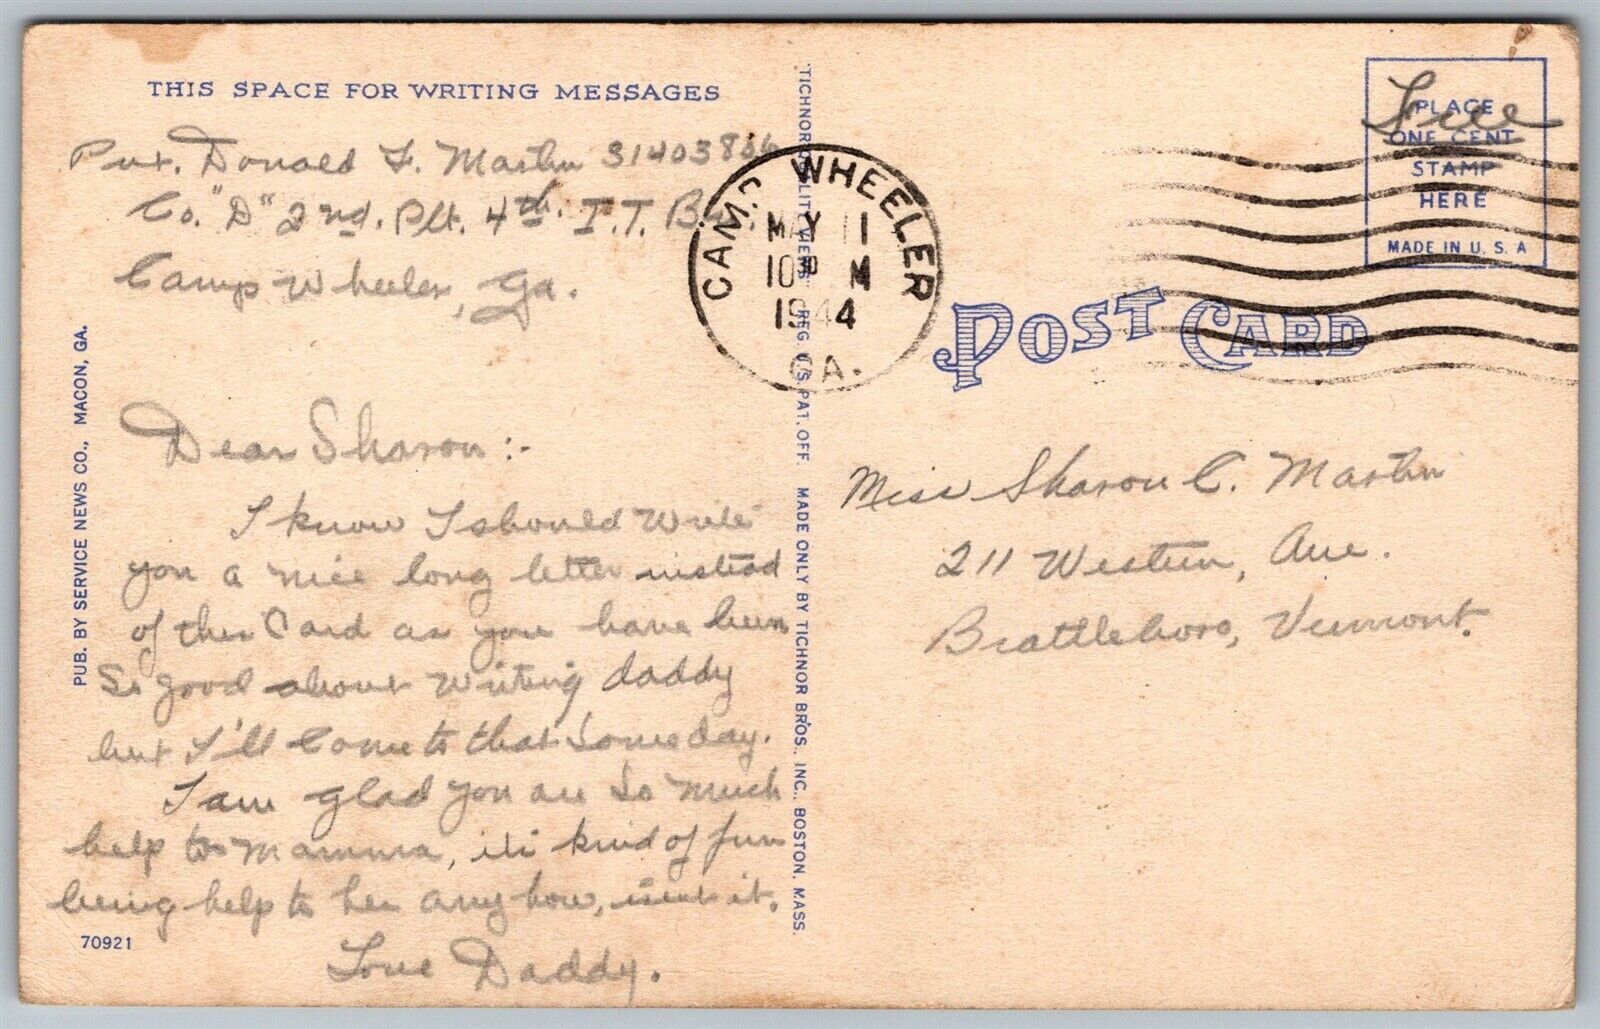 THIS SPACE FOR WRITING MESSAGES
Pvt. Donald F. Martin 31403866
Co. "D" 2nd. Plt. 4th. I.T. Bn.
Camp Wheeler, Ga.
Dear Sharon:-
I know I should write
you a nice long letter instead
of this Card as you have been
So good about writing daddy
but I'll Come to that Someday.
I am glad you are So much
help to Mamma, it's kind of fun
being help to her anyhow, isn't it.
Love Daddy.
70921
PUB. BY SERVICE NEWS CO., MACON, GA.
REG. U.S. PAT. OFF. MADE ONLY BY TICHNOR BROS., INC., BOSTON, MASS.
CAMP WHEELER
MAY 11
10 M
1944
GA.
Free
PLACE
ONE CENT
STAMP
HERE
MADE IN U. S. A
POST CARD
Miss Sharon C. Martin
211 Western, Ave.
Brattleboro, Vermont.